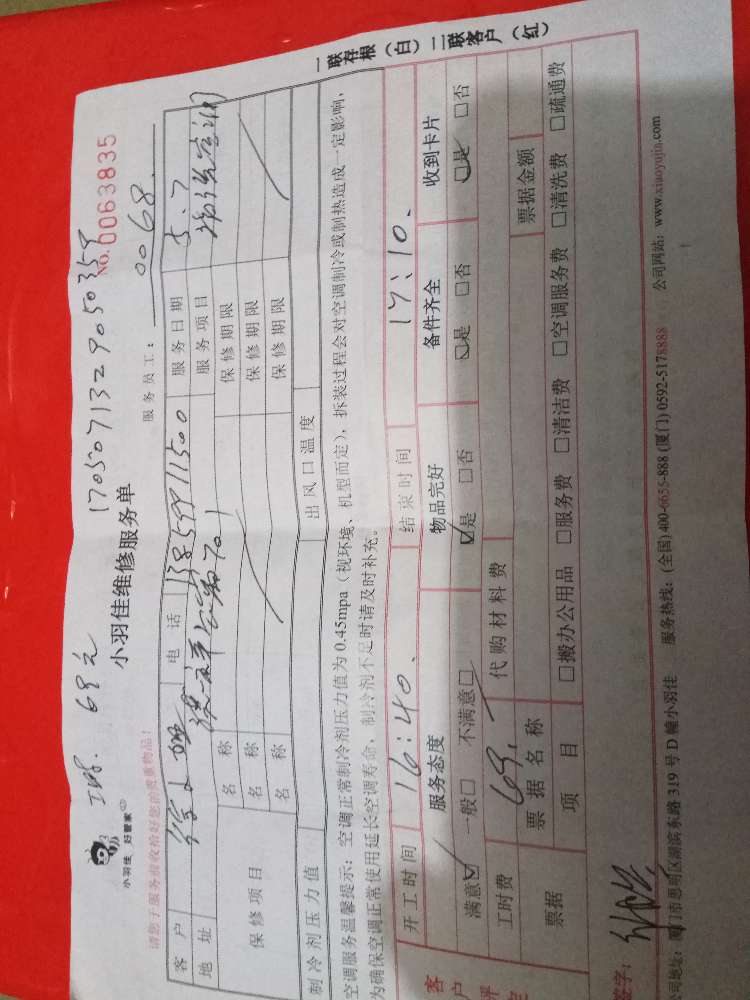 工时. 69元
1705071329050359
NO.0063835
小羽佳 好管家
小羽佳维修服务单
服务员工： 0068.
请您于服务前收拾好您的贵重物品！
客户 电话 13859911500 服务日期 5.7
地址 服务项目
保修项目 名称 保修期限
名称 保修期限
名称 保修期限
制冷剂压力值 出风口温度
空调服务温馨提示：空调正常制冷剂压力值为0.45mpa（视环境、机型而定），拆装过程会对空调制冷或制热造成一定影响，
为确保空调正常使用延长空调寿命，制冷剂不足时请及时补充。
开工时间 16:40. 结束时间 17:10.
客户评定
服务态度 物品完好 备件齐全 收到卡片
满意☑ 一般□ 不满意□ ☑是 □否 ☑是 □否 ☑是 □否
工时费 69. 代购材料费
票据 票据名称 票据金额
项目 □搬办公用品 □服务费 □清洁费 □空调服务费 □清洗费 □疏通费
签字：
公司地址：厦门市思明区湖滨东路319号D幢小羽佳 服务热线：(全国)400-6655-888 (厦门)0592-5178888 公司网站：www.xiaoyujia.com
一联存根（白）二联客户（红）